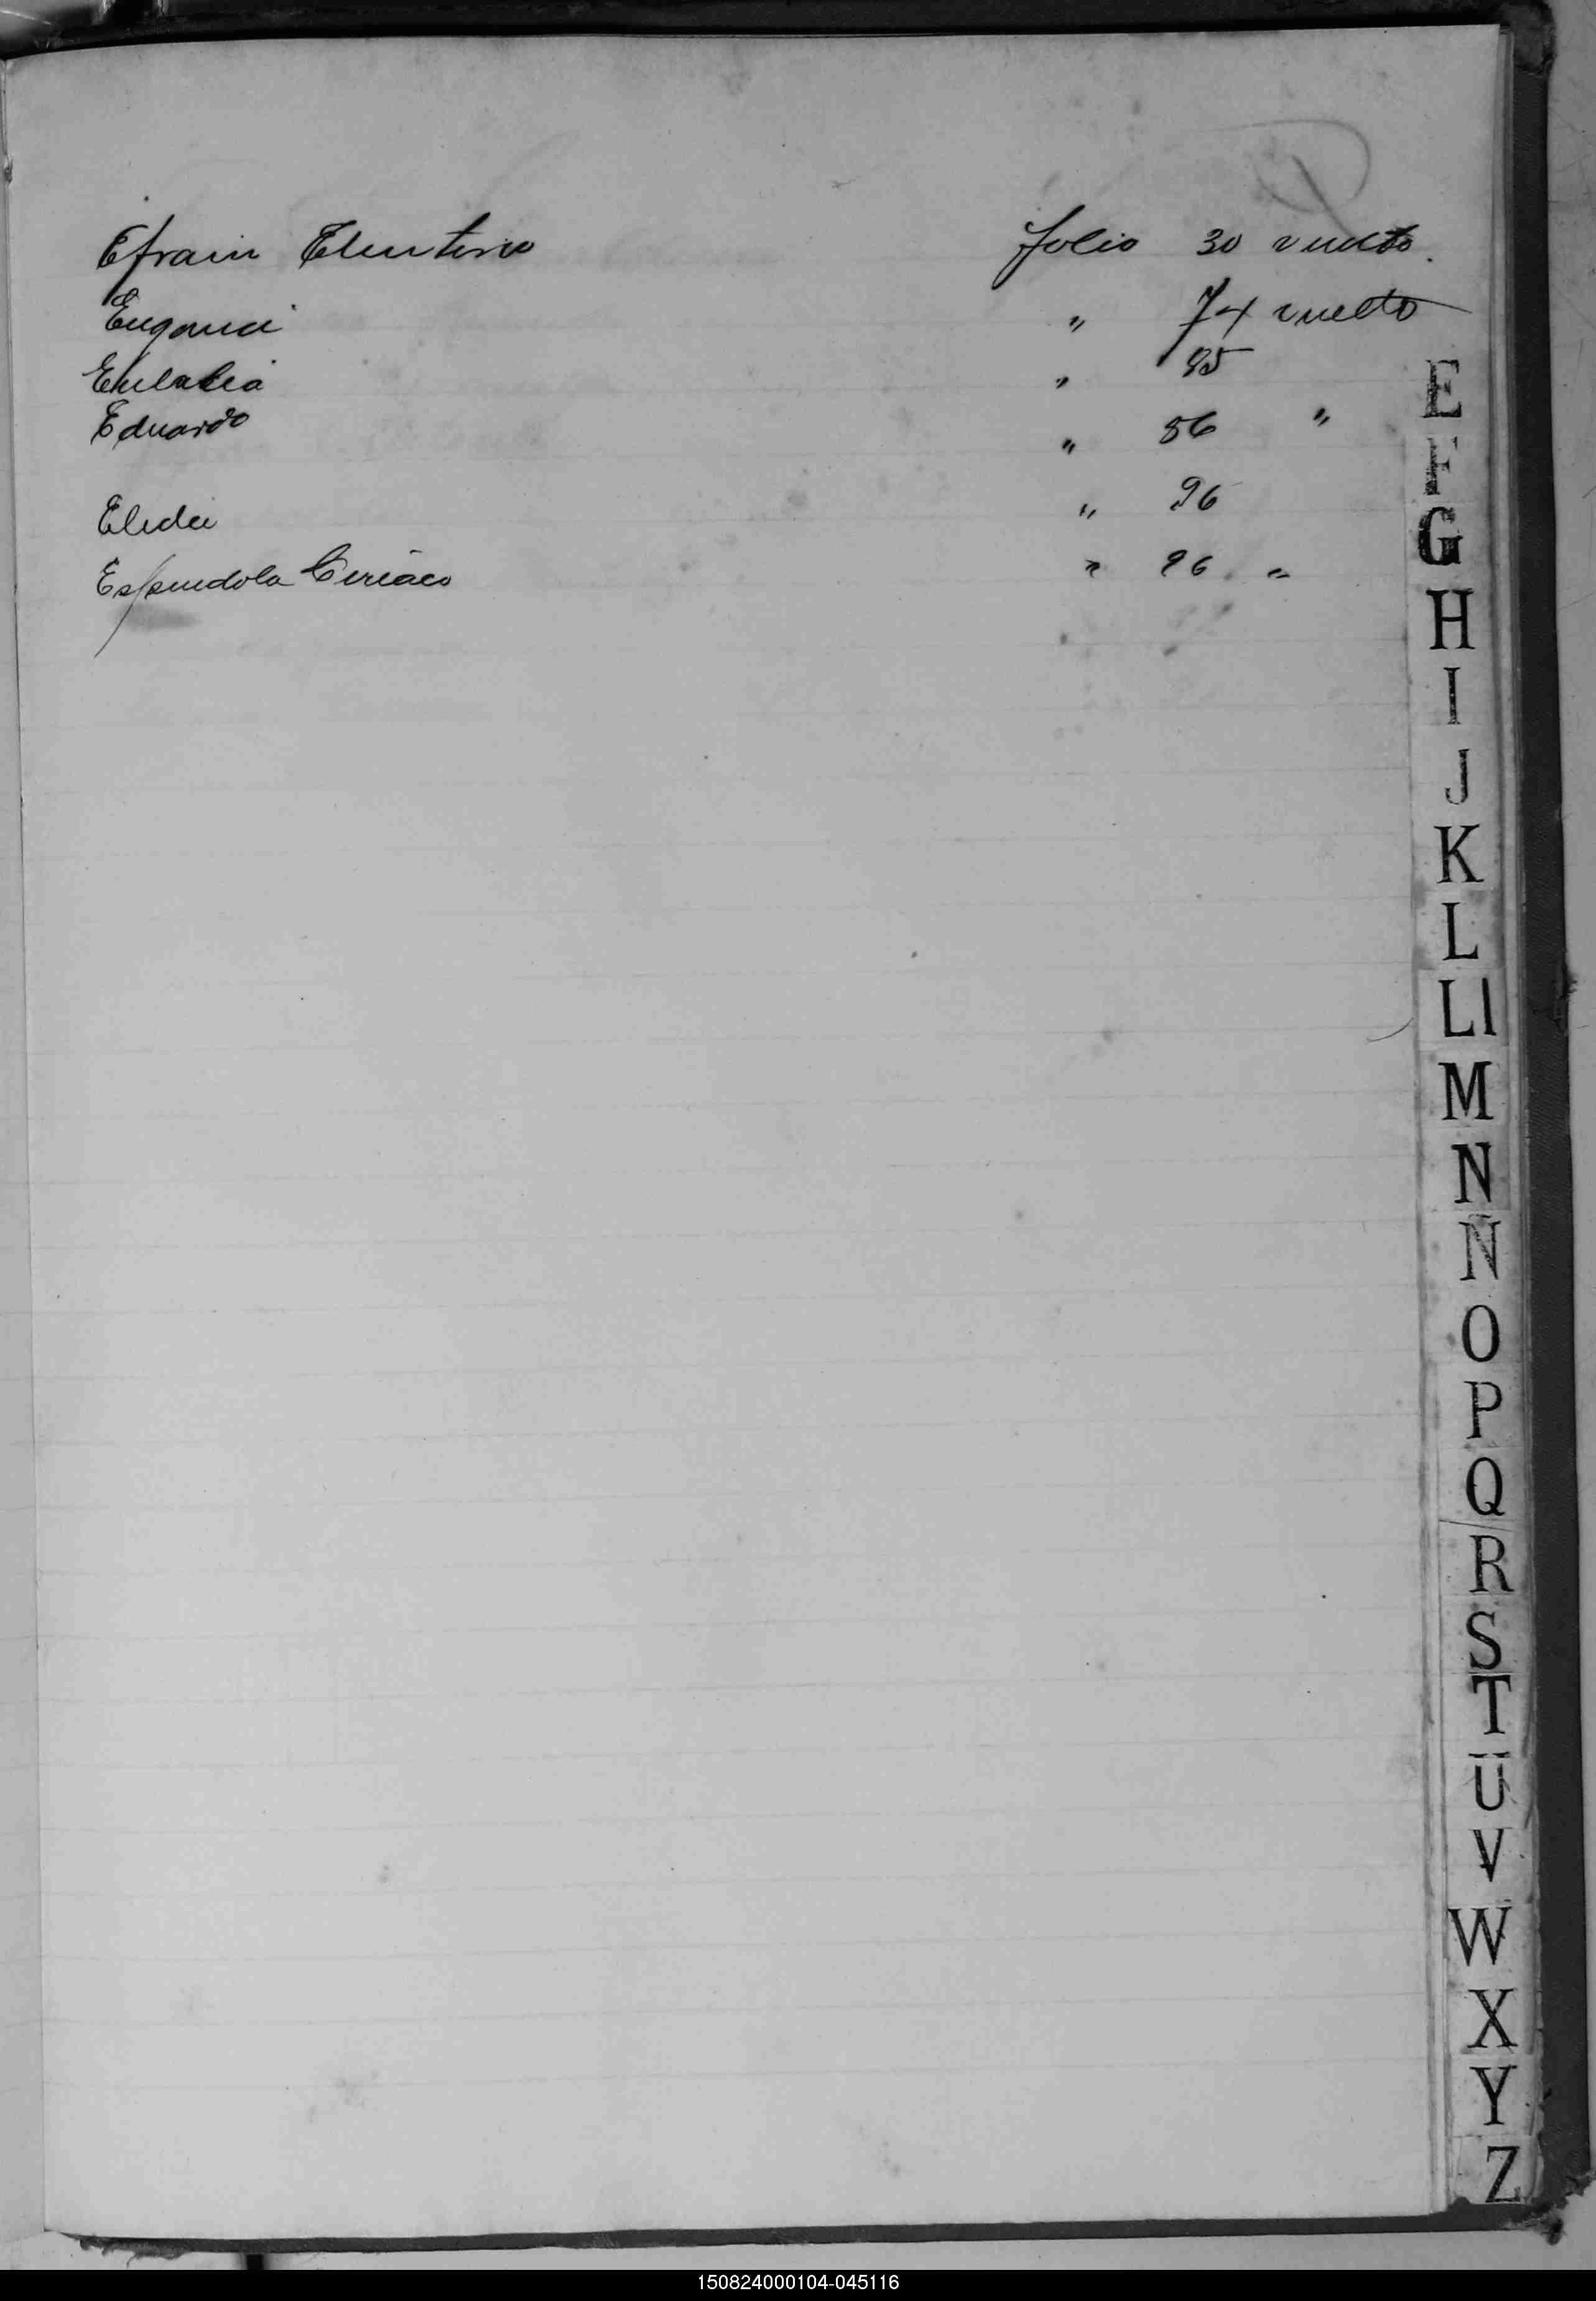 Efrain Eleuterio folio 30 vuelto.
Eugenia " 74 vuelto
Eulalia " 85
Eduardo " 86 "
Elida " 96
Espindola Ciriaco " 96 "
E
F
G
H
I
J
K
L
Ll
M
N
Ñ
O
P
Q
R
S
T
U
V
W
X
Y
Z
150824000104-045116